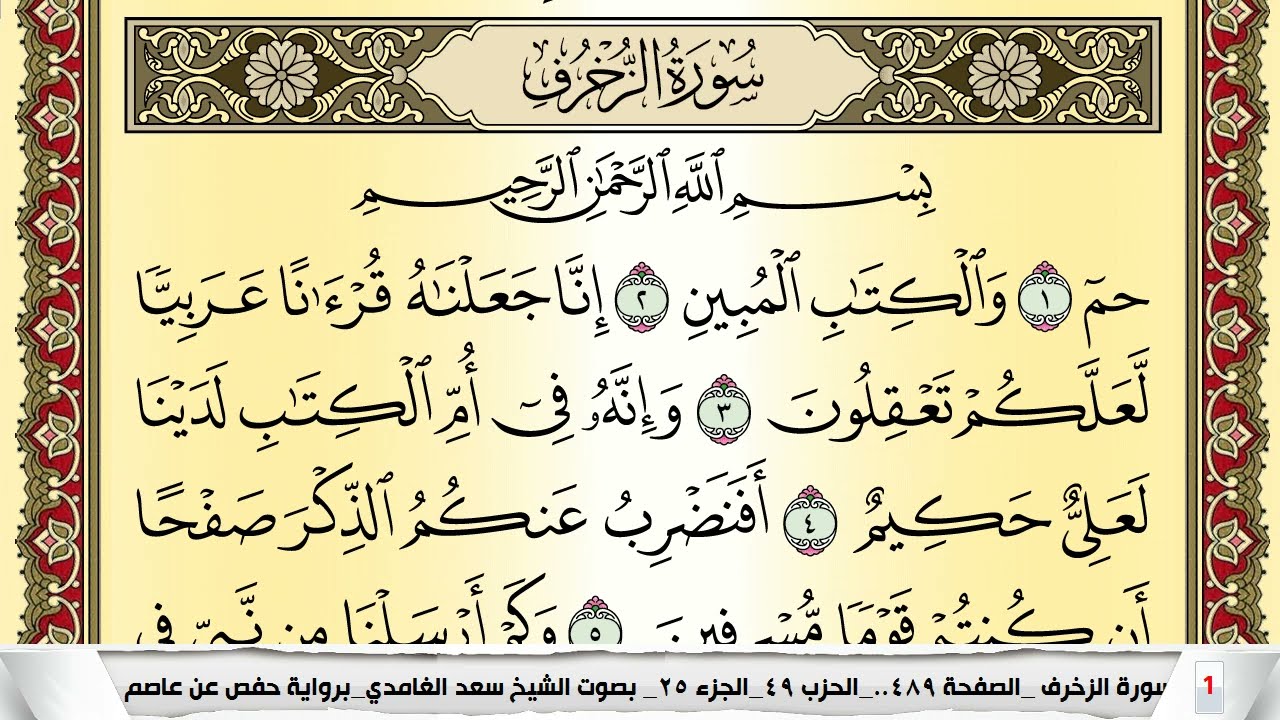 سُورَةُ الزُّخْرُفِ
بِسْمِ ٱللَّهِ ٱلرَّحْمَٰنِ ٱلرَّحِيمِ
حمٓ ١ وَٱلْكِتَٰبِ ٱلْمُبِينِ ٢ إِنَّا جَعَلْنَٰهُ قُرْءَٰنًا عَرَبِيًّا
لَّعَلَّكُمْ تَعْقِلُونَ ٣ وَإِنَّهُۥ فِىٓ أُمِّ ٱلْكِتَٰبِ لَدَيْنَا
لَعَلِىٌّ حَكِيمٌ ٤ أَفَنَضْرِبُ عَنكُمُ ٱلذِّكْرَ صَفْحًا
أَن كُنتُمْ قَوْمًا مُّسْرِفِينَ ٥ وَكَمْ أَرْسَلْنَا مِن نَّبِىٍّ فِى
1 سورة الزخرف _الصفحة ٤٨٩.._الحزب ٤٩_الجزء ٢٥_ بصوت الشيخ سعد الغامدي_برواية حفص عن عاصم